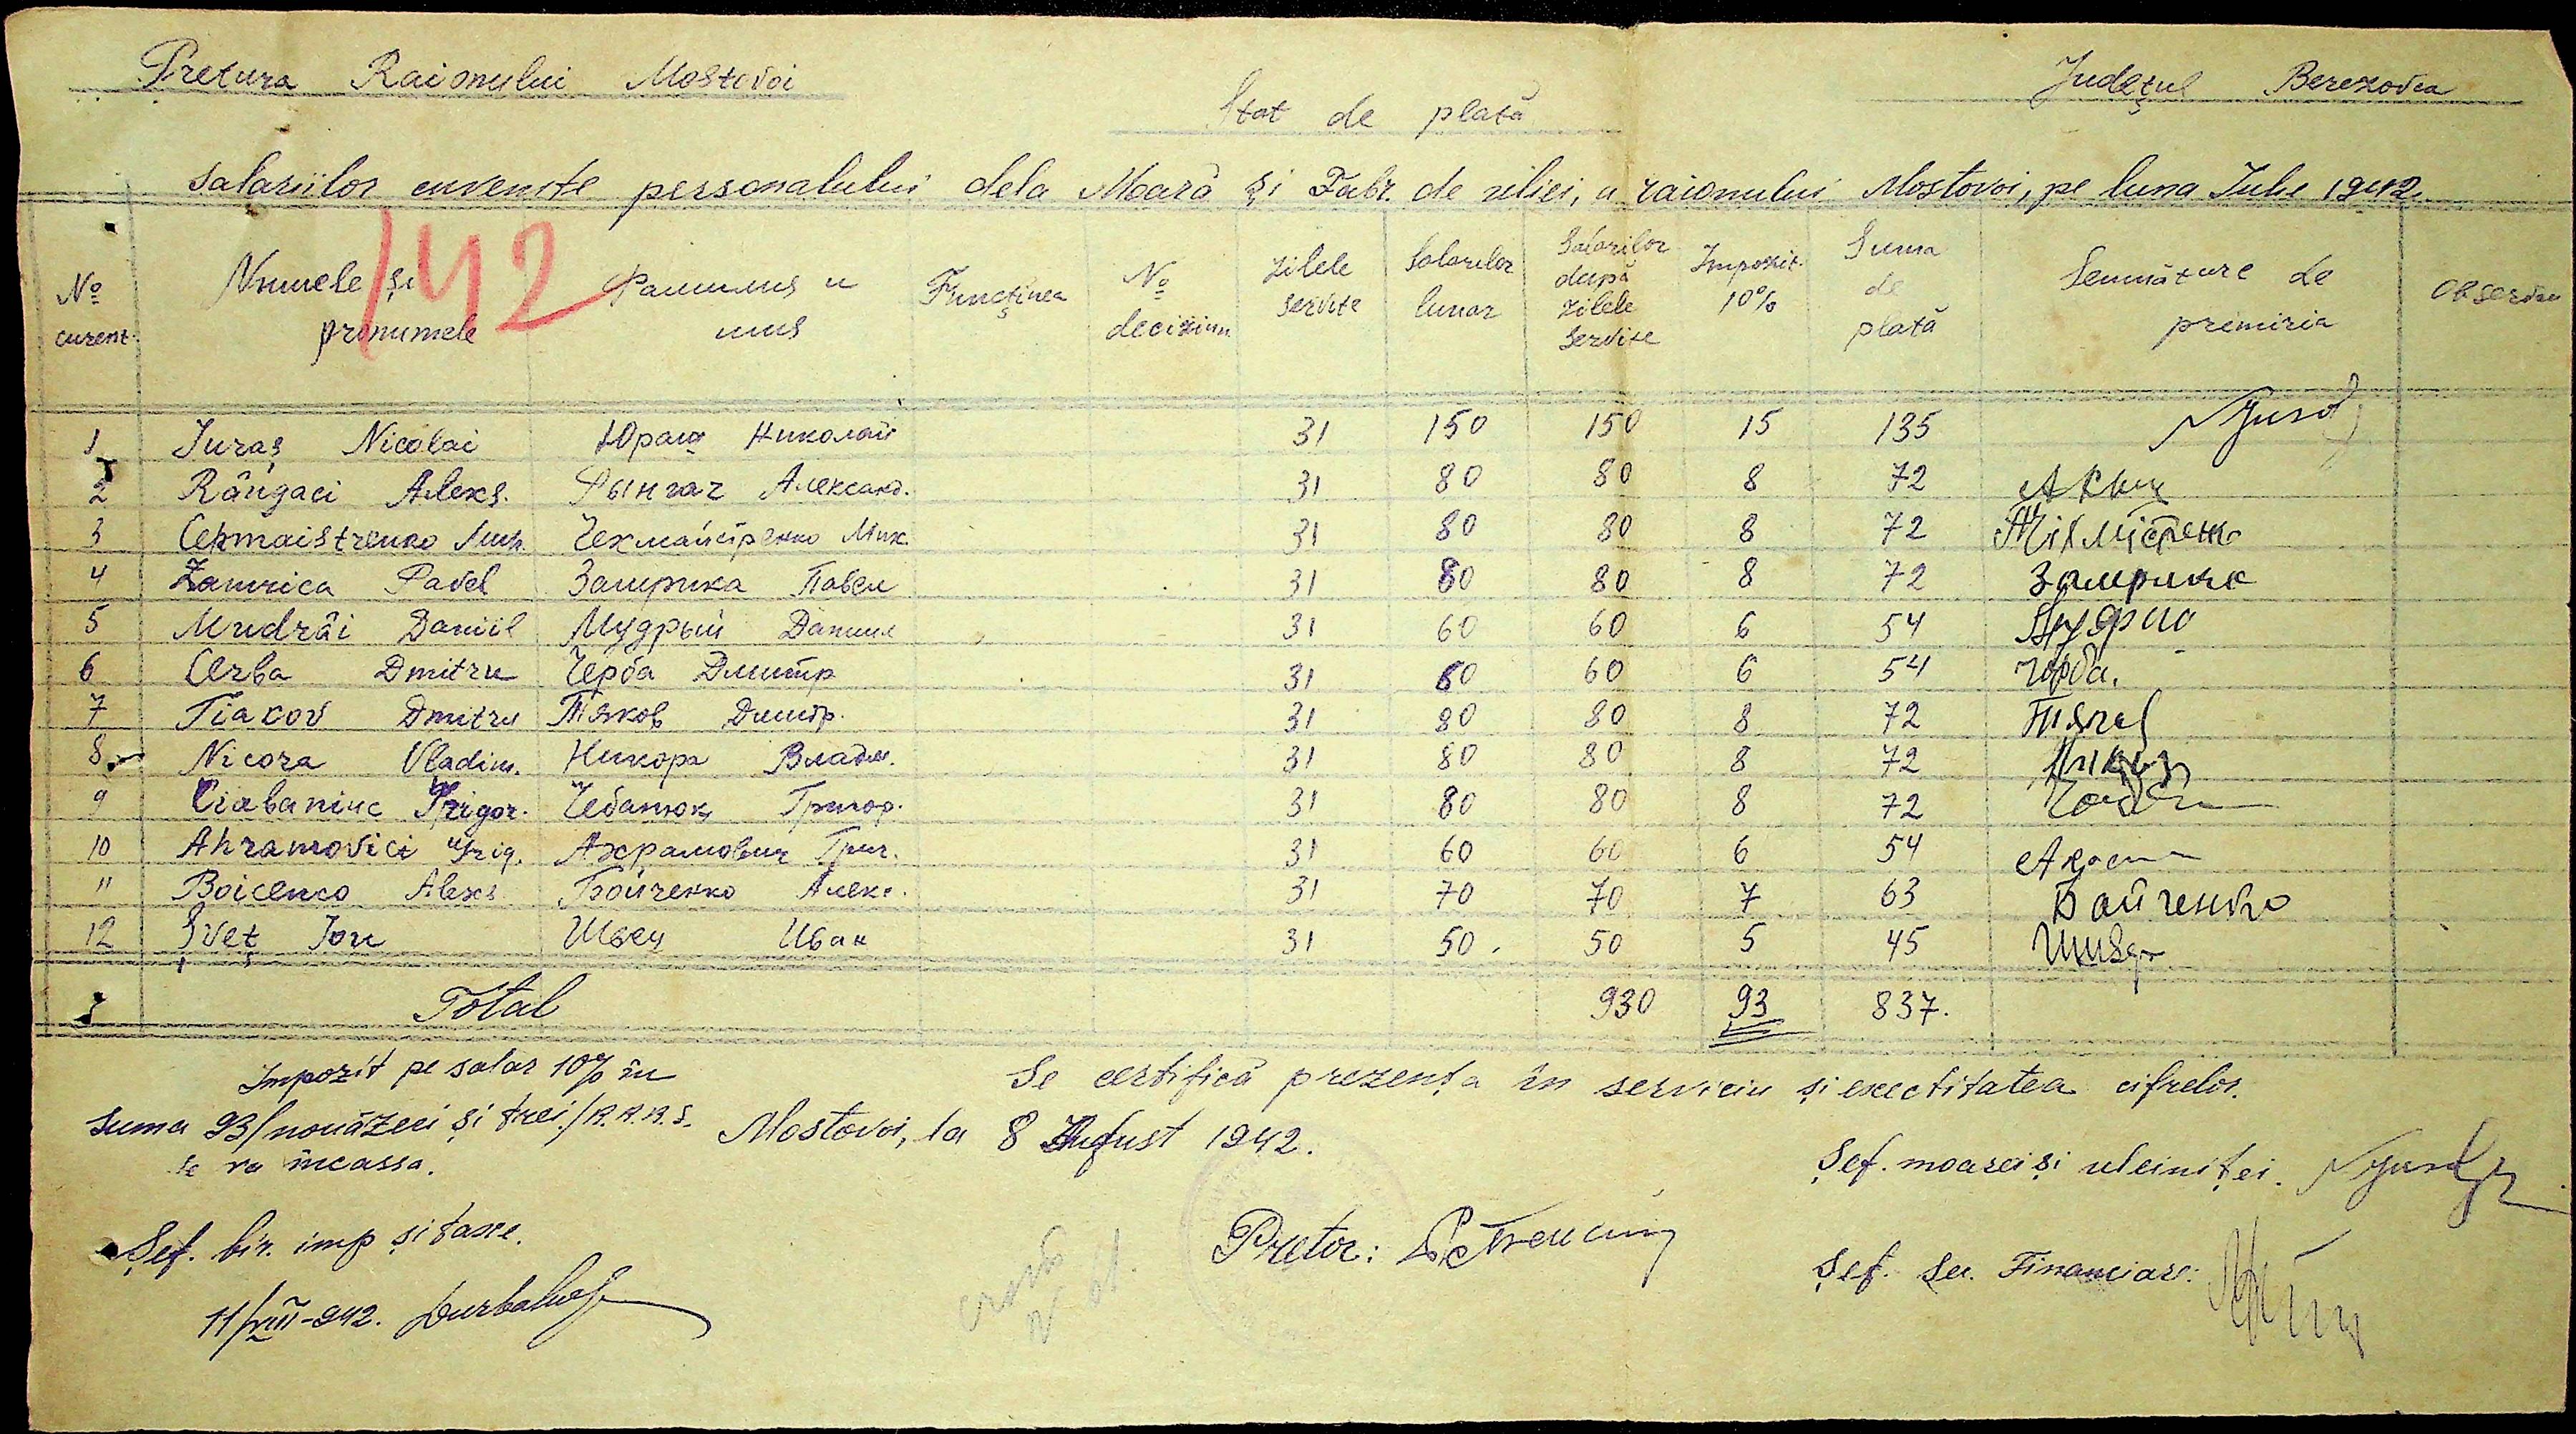 Pretura Raionului Mostovoi
Județul Berezovca
Stat de plată
salariilor cuvenite personalului dela Moară și Fabr. de uliei, a raionului Mostovoi, pe luna Iulie 1942.
142
№ curent. Numele și pronumele Фамилия и имя Funcținea № deciziun. Zilele servite Salarilor lunar Salarilor după zilele servite Impozit. 10% Suma de plată Semnăture de primiria Observau
1 Juraș Nicolai Юраш Николай 31 150 150 15 135
2 Rângaci Aleks. Рынгач Александ. 31 80 80 8 72
3 Cehmaistrenko Мих. Чехмайстренко Мих. 31 80 80 8 72
4 Zamrica Pavel Замрика Павел 31 80 80 8 72 Замрика
5 Mudrâi Daniil Мудрый Данил 31 60 60 6 54
6 Cerba Dmitru Черба Дмитр 31 60 60 6 54 Чорба.
7 Tiacov Dmitru Тяков Дмитр. 31 80 80 8 72
8 Nicora Vladim. Никора Владим. 31 80 80 8 72
9 Ciabaniuc Grigor. Чебанюк Григор. 31 80 80 8 72
10 Ahramovici Grig. Ахрамович Григ. 31 60 60 6 54
11 Boicenco Aleks Бойченко Алекс. 31 70 70 7 63 Байченко
12 Șveț Ion Швец Иван 31 50. 50 5 45
Total 930 93 837.
Impozit pe salar 10% în
suma 93/nouăzeci și trei/R.K.K.S.
se va incassa.
Se certifică prezența în serviciu și exectitatea cifrelor.
Mostovoi, la 8 August 1942.
Șef. moarei și uleiniței.
Șef. bir. imp și taxe.
Pretor:
Șef. Sec. Financiare:
11/VIII-942.